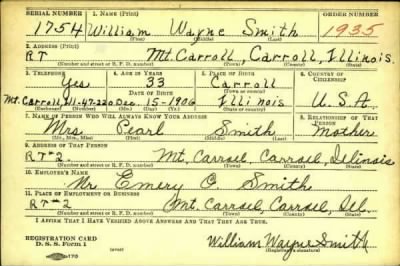 SERIAL NUMBER 1. NAME (Print) ORDER NUMBER
1754 William Wayne Smith 1935
(First) (Middle) (Last)
2. ADDRESS (Print)
RT Mt. Carroll, Carroll, Illinois.
(Number and street or R. F. D. number) (Town) (County) (State)
3. TELEPHONE 4. AGE IN YEARS 5. PLACE OF BIRTH 6. COUNTRY OF CITIZENSHIP
Yes 33 Carroll
DATE OF BIRTH (Town or county)
Mt. Carroll Ill-47-220 Dec. 15-1906 Illinois U.S.A.
(Exchange) (Number) (Mo.) (Day) (Yr.) (State or country)
7. NAME OF PERSON WHO WILL ALWAYS KNOW YOUR ADDRESS 8. RELATIONSHIP OF THAT PERSON
Mrs. Pearl Smith Mother
(Mr., Mrs., Miss) (First) (Middle) (Last)
9. ADDRESS OF THAT PERSON
RT#2. Mt. Carroll, Carroll, Illinois
(Number and street or R. F. D. number) (Town) (County) (State)
10. EMPLOYER'S NAME
Mr. Emery C. Smith
11. PLACE OF EMPLOYMENT OR BUSINESS
RT#2 Mt. Carroll, Carroll, Ill.
(Number and street or R. F. D. number) (Town) (County) (State)
I AFFIRM THAT I HAVE VERIFIED ABOVE ANSWERS AND THAT THEY ARE TRUE.
REGISTRATION CARD
D. S. S. Form 1 (over) William Wayne Smith
(Registrant's signature)